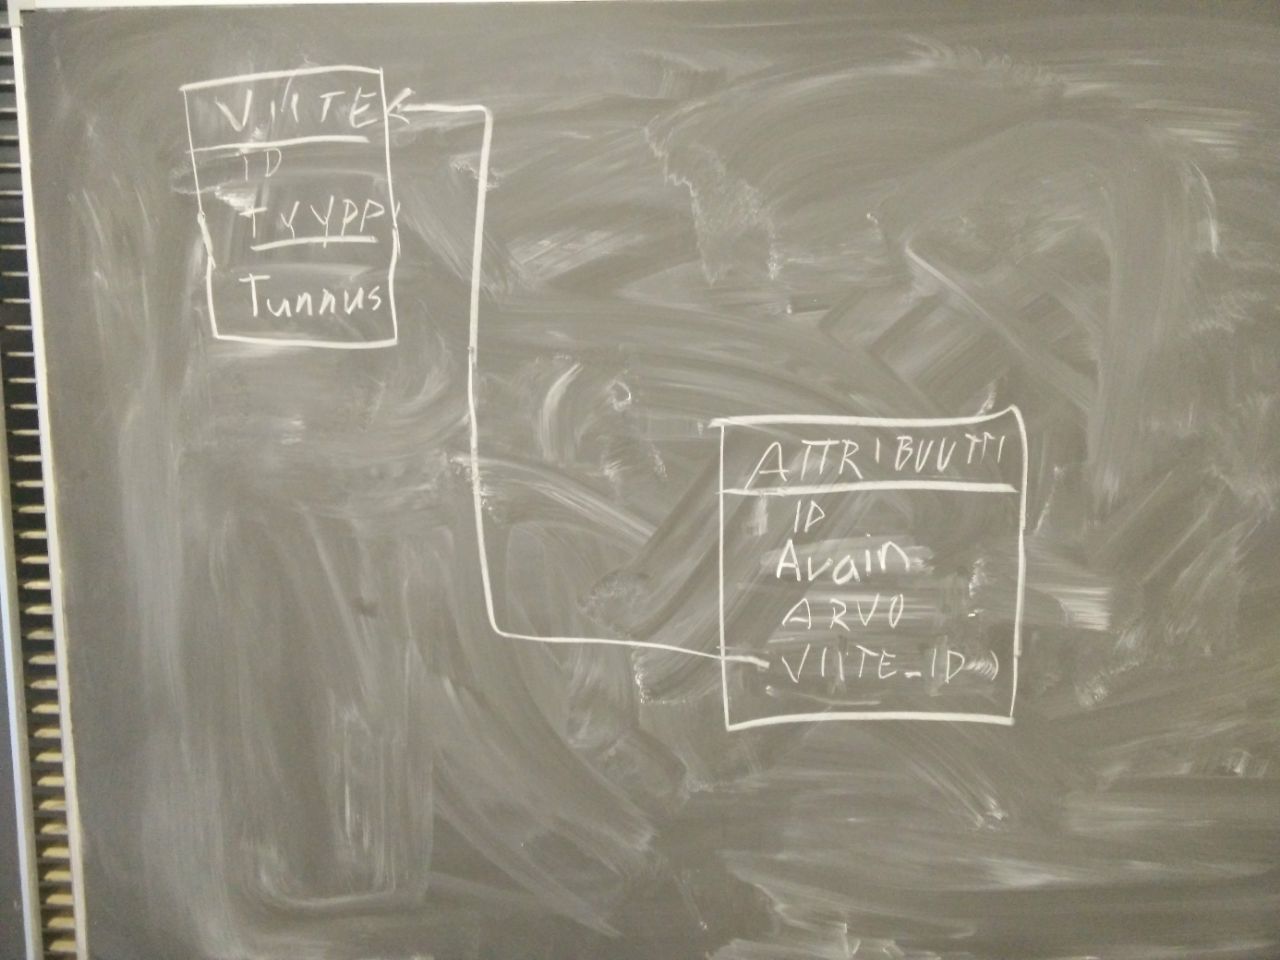 VIITE
ID
TYYPPI
Tunnus
ATTRIBUUTTI
ID
Avain
ARVO
VIITE_ID